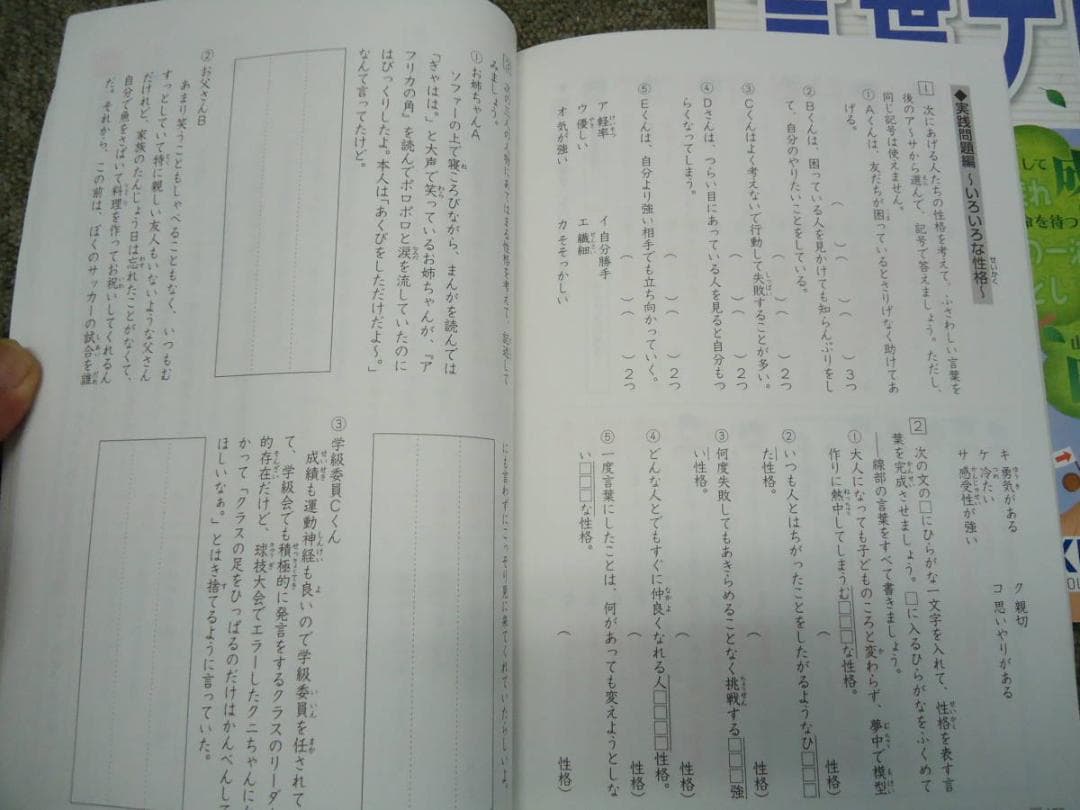 ◆実践問題編 〜いろいろな性格〜
1 次にあげる人たちの性格を考えて、ふさわしい言葉を
後のア〜サから選んで、記号で答えましょう。ただし、
同じ記号は使えません。
① Aくんは、友だちが困っているとさりげなく助けてあ
げる。
( ) ( ) ( ) 3つ
② Bくんは、困っている人を見かけても知らんぷりをし
て、自分のやりたいことをしている。
( ) ( ) 2つ
③ Cくんはよく考えないで行動して失敗することが多い。
( ) ( ) 2つ
④ Dさんは、つらい目にあっている人を見ると自分もつ
らくなってしまう。
( ) ( ) 2つ
⑤ Eくんは、自分より強い相手でも立ち向かっていく。
( ) ( ) 2つ
ア 軽率
イ 自分勝手
ウ 優しい
エ 繊細
オ 気が強い
カ そそっかしい
キ 勇気がある
ク 親切
ケ 冷たい
コ 思いやりがある
サ 感受性が強い
2 次の文の□にひらがな一文字を入れて、性格を表す言
葉を完成させましょう。□に入るひらがなをふくめて
――線部の言葉をすべて書きましょう。
① 大人になっても子どものころと変わらず、夢中で模型
作りに熱中してしまうむ□□□な性格。
( 性格)
② いつも人とはちがったことをしたがるようなひ□□□
た性格。
( 性格)
③ 何度失敗してもあきらめることなく挑戦する□□□強
い性格。
( 性格)
④ どんな人とでもすぐに仲良くなれる人□□□□性格。
( 性格)
⑤ 一度言葉にしたことは、何があっても変えようとしな
い□□□な性格。
( 性格)
みましょう。
① お姉ちゃんA
ソファーの上で寝ころびながら、まんがを読んでは
「きゃはは。」と大声で笑っているお姉ちゃんが、『ア
フリカの角』を読んでポロポロと涙を流していたのに
はびっくりしたよ。本人は「あくびをしただけだよ〜。」
なんて言ってたけど。
② お父さんB
あまり笑うこともしゃべることもなく、いつもむ
すっとしていて特に親しい友人もいないような父さん
だけれど、家族のたんじょう日は忘れたことがなくて、
自分で魚をさばいて料理を作ってお祝いしてくれるん
だ。それから、この前は、ぼくのサッカーの試合を誰
にも言わずにこっそり見に来てくれていたらしいよ。
③ 学級委員Cくん
成績も運動神経も良いので学級委員を任されて
て、学級会でも積極的に発言をするクラスのリーダ
的存在だけど、球技大会でエラーしたクニちゃんに
かって「クラスの足をひっぱるのだけはかんべんして
ほしいなぁ。」とはき捨てるように言っていた。